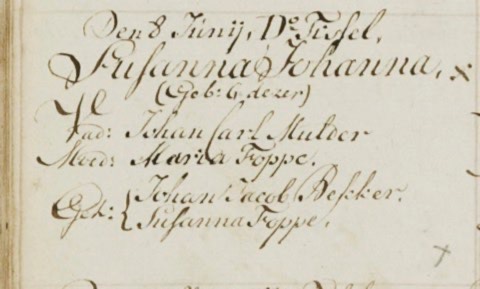 Den 8 Junij, Do: Tissel.
Susanna Johanna.
(Geb: 6 dezer)
Vad: Johan Carl Mulder
Moed: Maria Foppe.
Get: Johan Jacob Bescker.
Susanna Foppe.